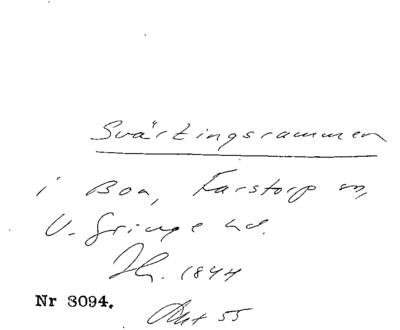 Svärtingsrammen
i Boa, Farstorp sn,
V. Göinge hd.
1844
Nr 3094.
Akt 55